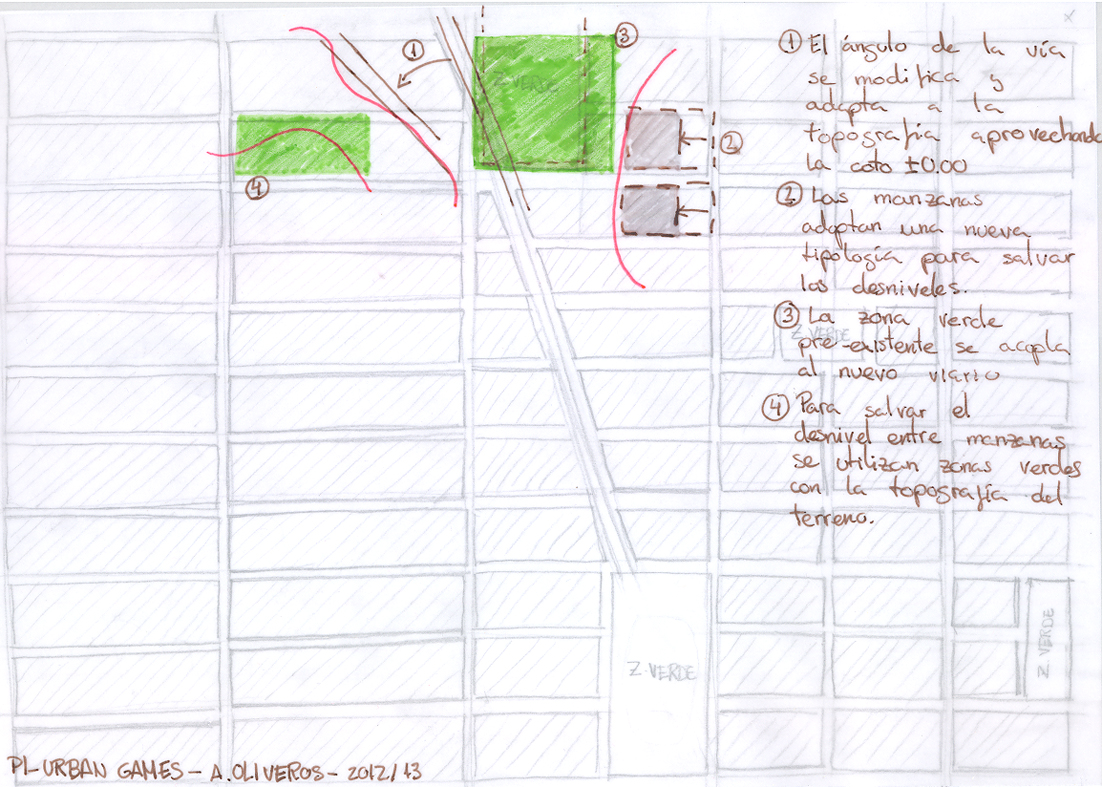 ① El ángulo de la vía
se modifica y
adapta a la
topografía aprovechando
la cota ±0.00
② Las manzanas
adoptan una nueva
tipología para salvar
los desniveles.
③ La zona verde
pre-existente se acopla
al nuevo viario
④ Para salvar el
desnivel entre manzanas
se utilizan zonas verdes
con la topografía del
terreno.
①
③
Z.VERDE
②
④
Z VERDE
Z-VERDE
Z VERDE
P1-URBAN GAMES- A.OLIVEROS- 2012/13